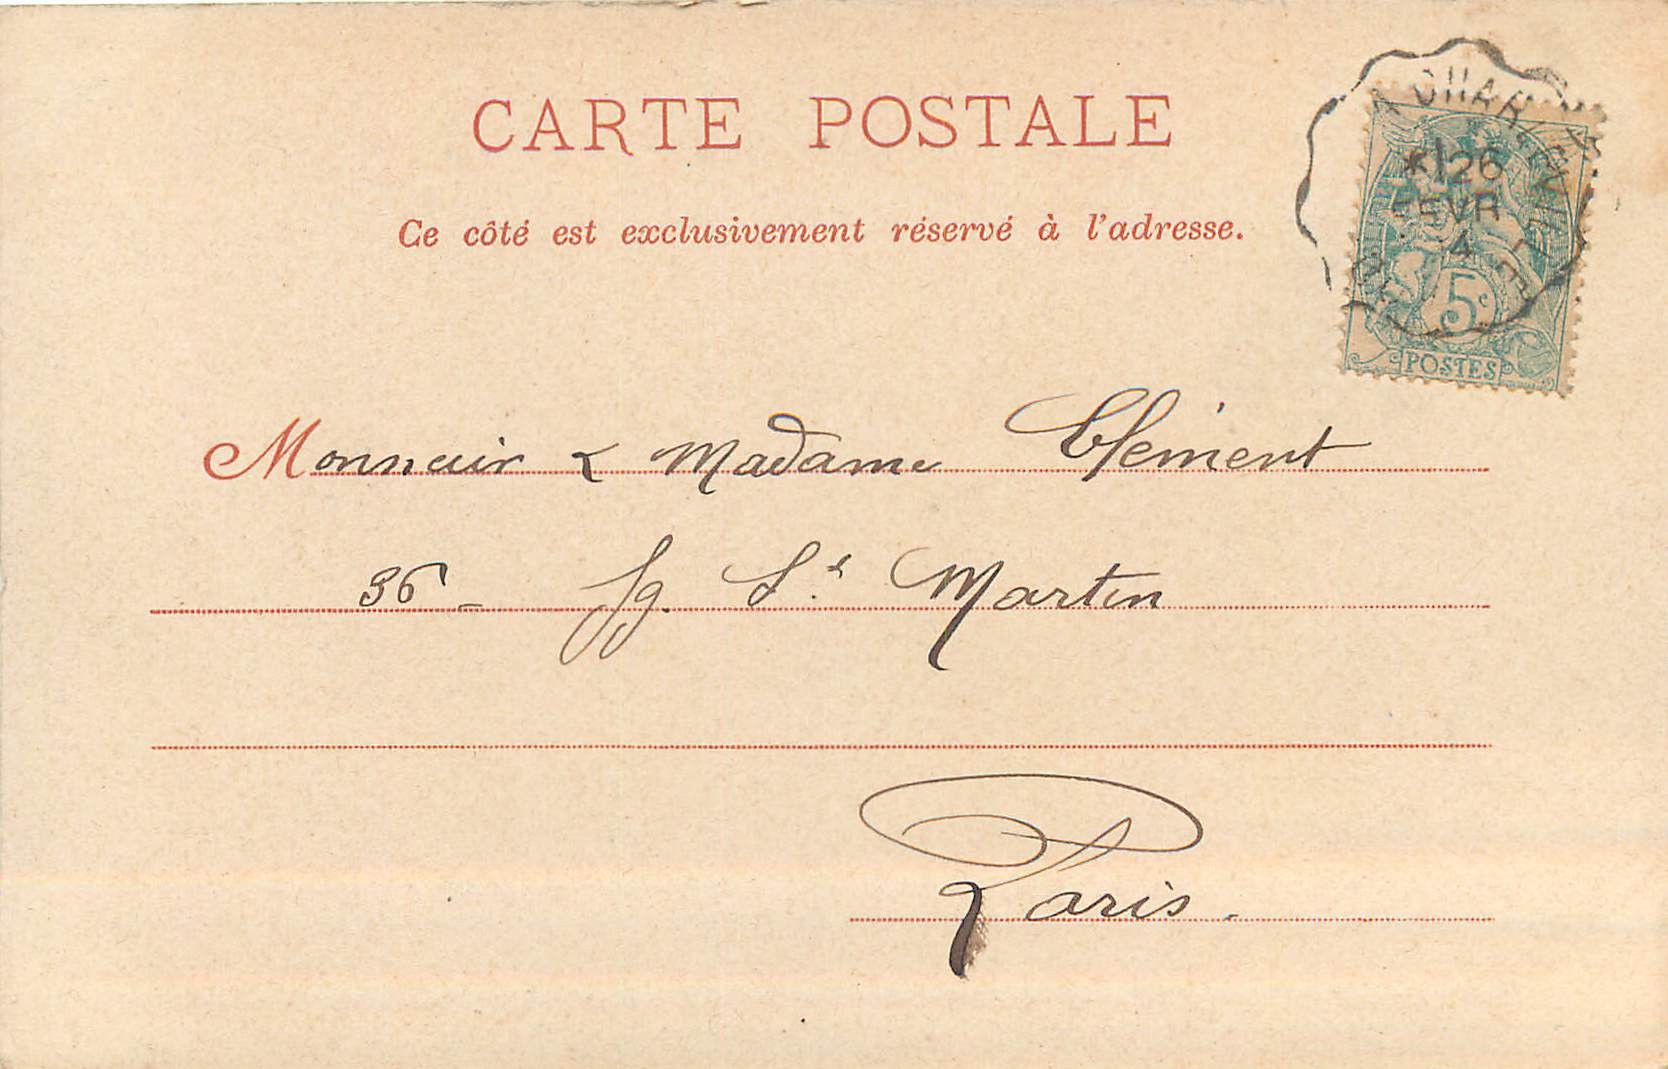 CARTE POSTALE
Ce côté est exclusivement réservé à l'adresse.
*1 26
FEVR
4
5c
POSTES
Monsieur & Madame Clément
36 - fg. St Martin
Paris.